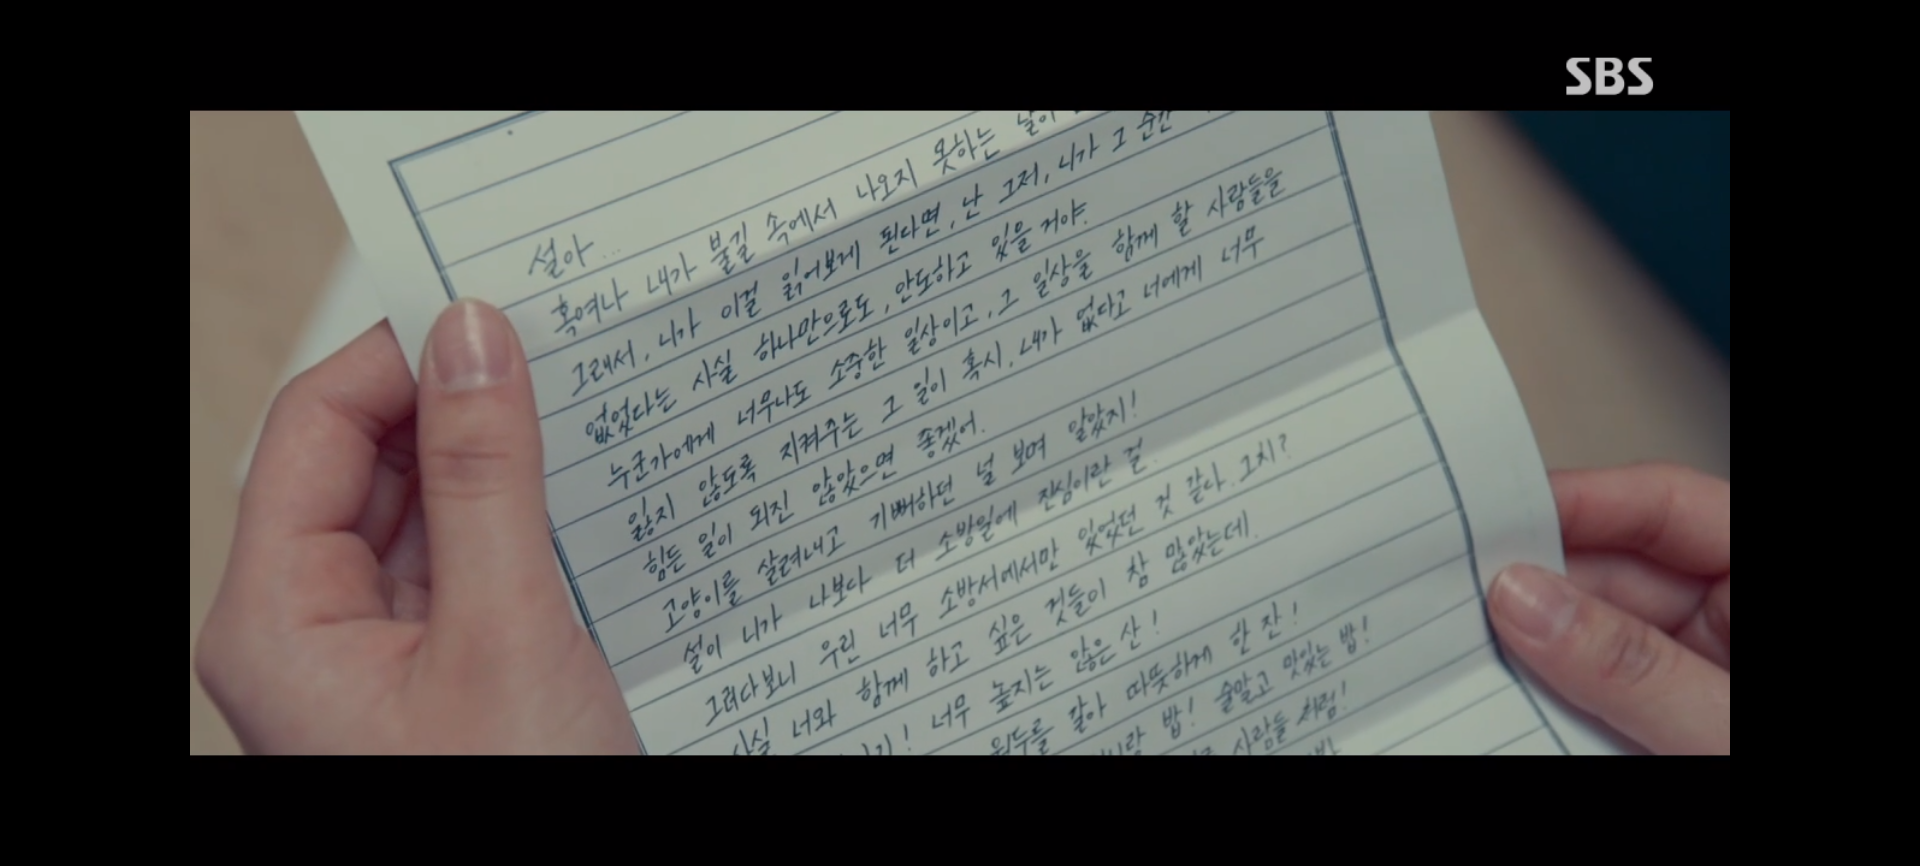 SBS
설아...
혹여나 내가 불길 속에서 나오지 못하는 날이
그래서, 니가 이걸 읽어보게 된다면, 난 그저, 니가 그 순간
없었다는 사실 하나만으로도, 안도하고 있을 거야.
누군가에게 너무나도 소중한 일상이고, 그 일상을 함께 할 사람들을
잃지 않도록 지켜주는 그 일이 혹시, 내가 없다고 너에게 너무
힘든 일이 되진 않았으면 좋겠어.
고양이를 살려내고 기뻐하던 널 보며 알았지!
설이 니가 나보다 더 소방일에 진심이란 걸.
그러다보니 우린 너무 소방서에서만 있었던 것 같다. 그치?
사실 너와 함께 하고 싶은 것들이 참 많았는데.
! 너무 높지는 않은 산!
원두를 갈아 따뜻하게 한 잔!
밥! 술말고 맛있는 밥!
사람들 처럼!